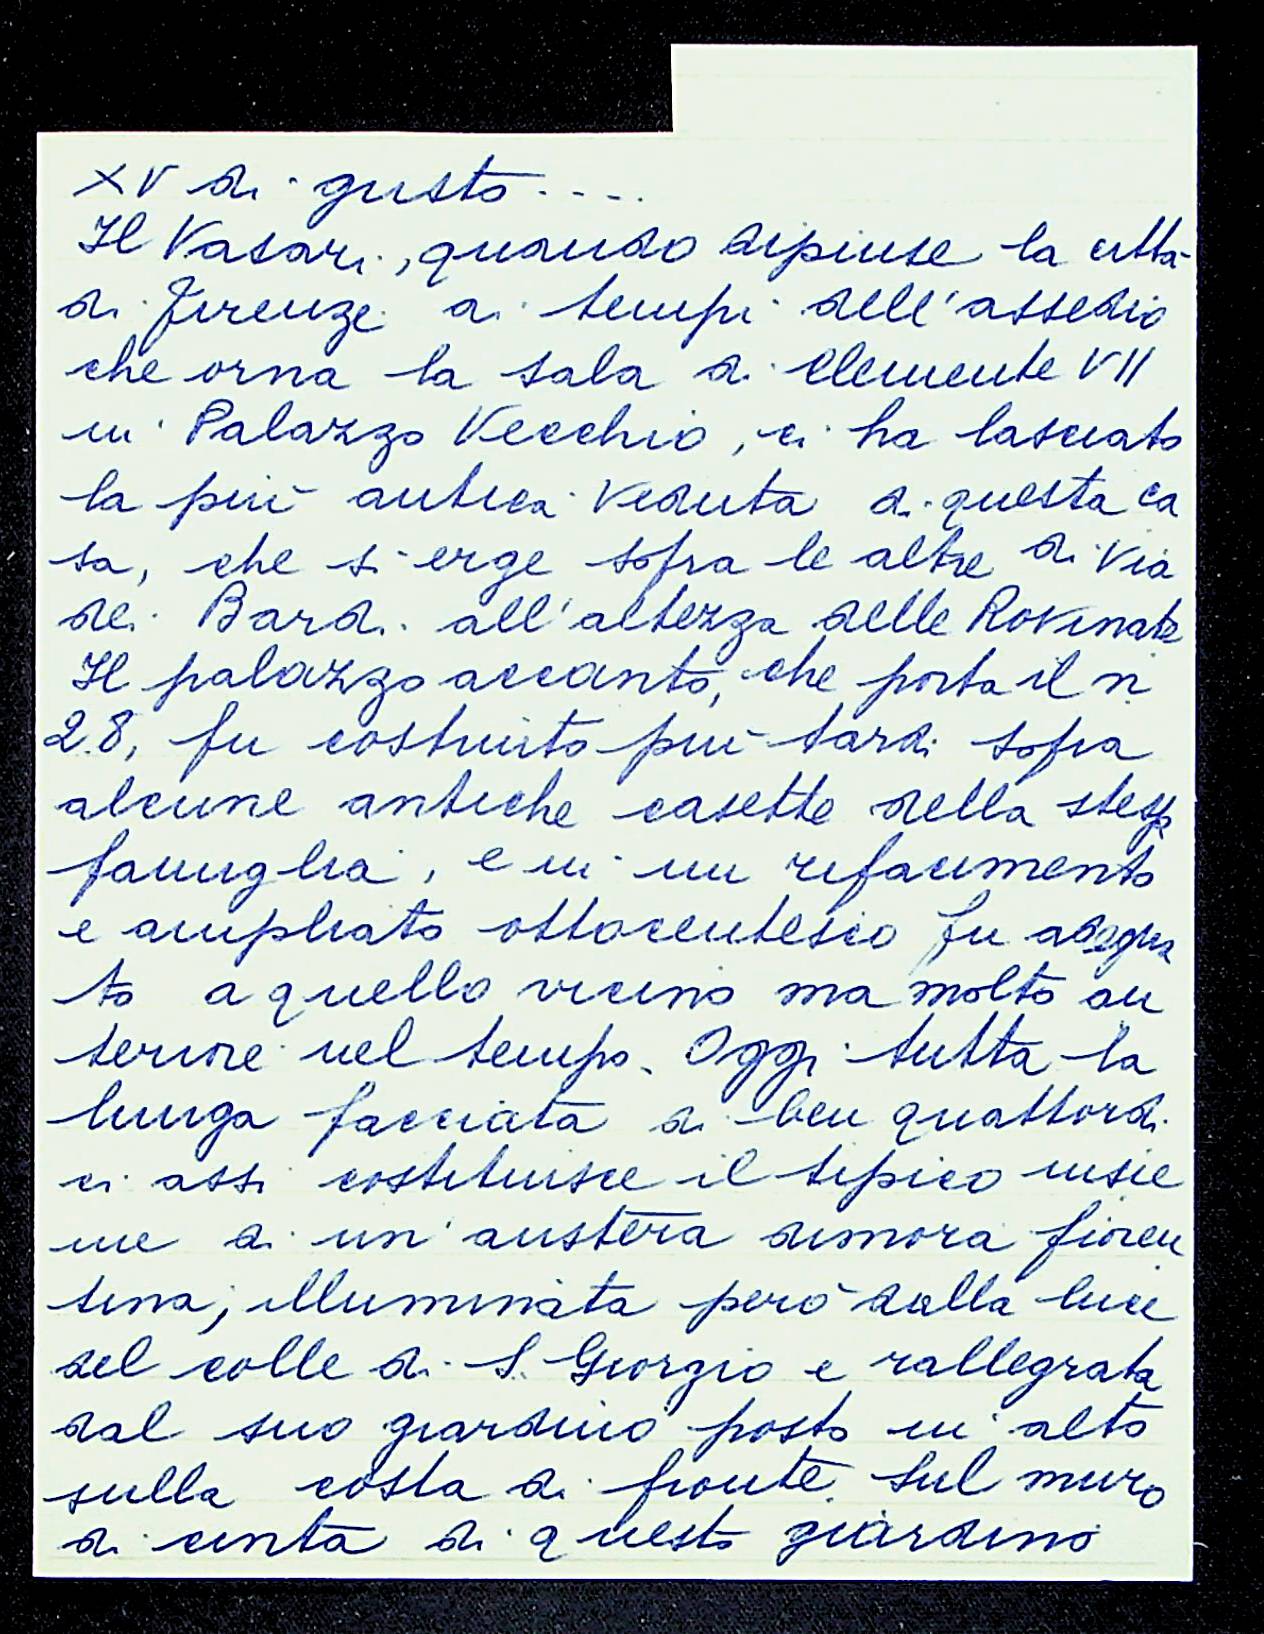 XV di gusto....
Il Vasari, quando dipinse la città
di Firenze ai tempi dell'assedio
che orna la sala di Clemente VII
in Palazzo Vecchio, ci ha lasciato
la più antica veduta di questa ca
sa, che si erge sopra le altre di Via
dei Bardi all'altezza delle Rovinate
Il palazzo accanto, che porta il n
28, fu costruito più tardi sopra
alcune antiche casette della stessa
famiglia, e in un rifacimento
e ampliato ottocentesco fu adegua
to a quello vicino ma molto an
teriore nel tempo. Oggi tutta la
lunga facciata di ben quattordi
ci assi costituisce il tipico insie
me di un'austera dimora fioren
tina, illuminata però dalla luce
del colle di S. Giorgio e rallegrata
dal suo giardino posto in alto
sulla costa di fronte. Sul muro
di cinta di questo giardino